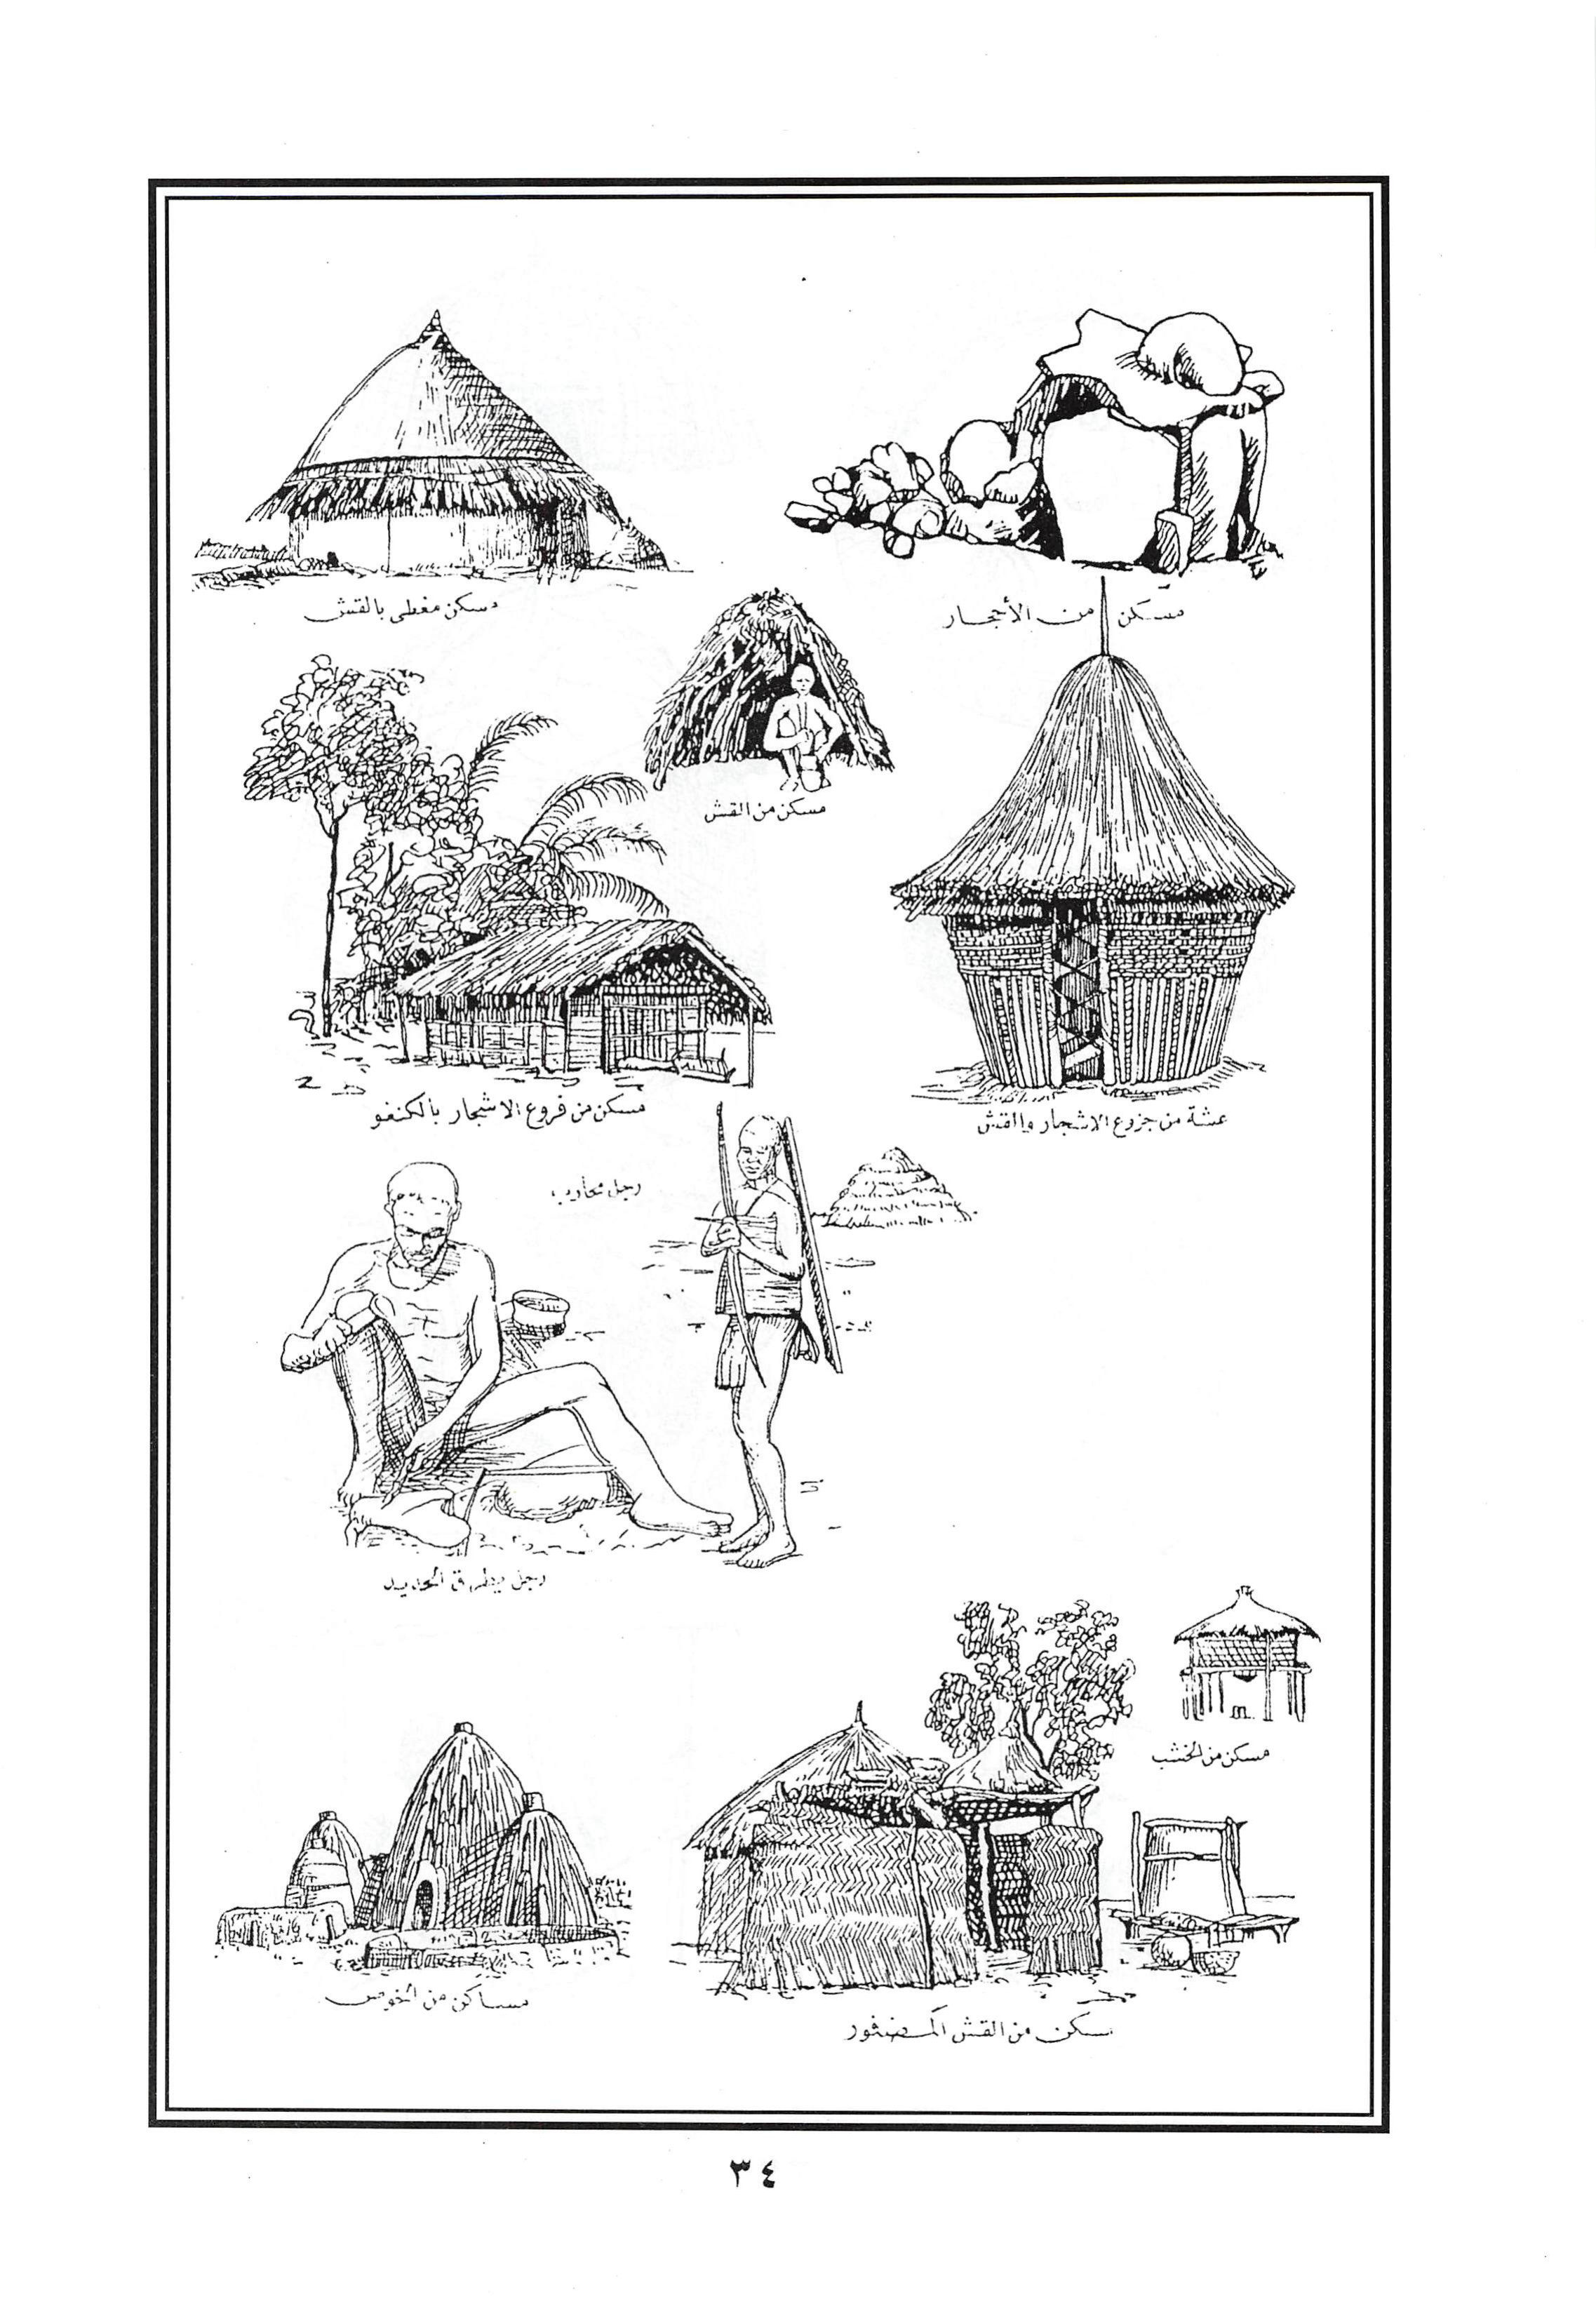 مسكن من الأحجار
مسكن مغطى بالقش
مسكن من القش
مسكن من فروع الاشجار بالكنغو
عشة من جزوع الاشجار والقش
رجل محارب
رجل يطرق الحديد
مسكن من الخشب
مساكن من الخوص
مسكن من القش المضفور
٣٤